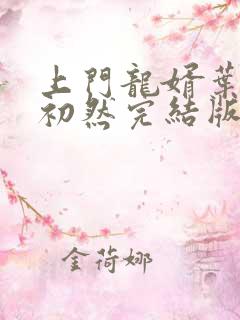 上門龍婿葉
初然完結版
金荷娜